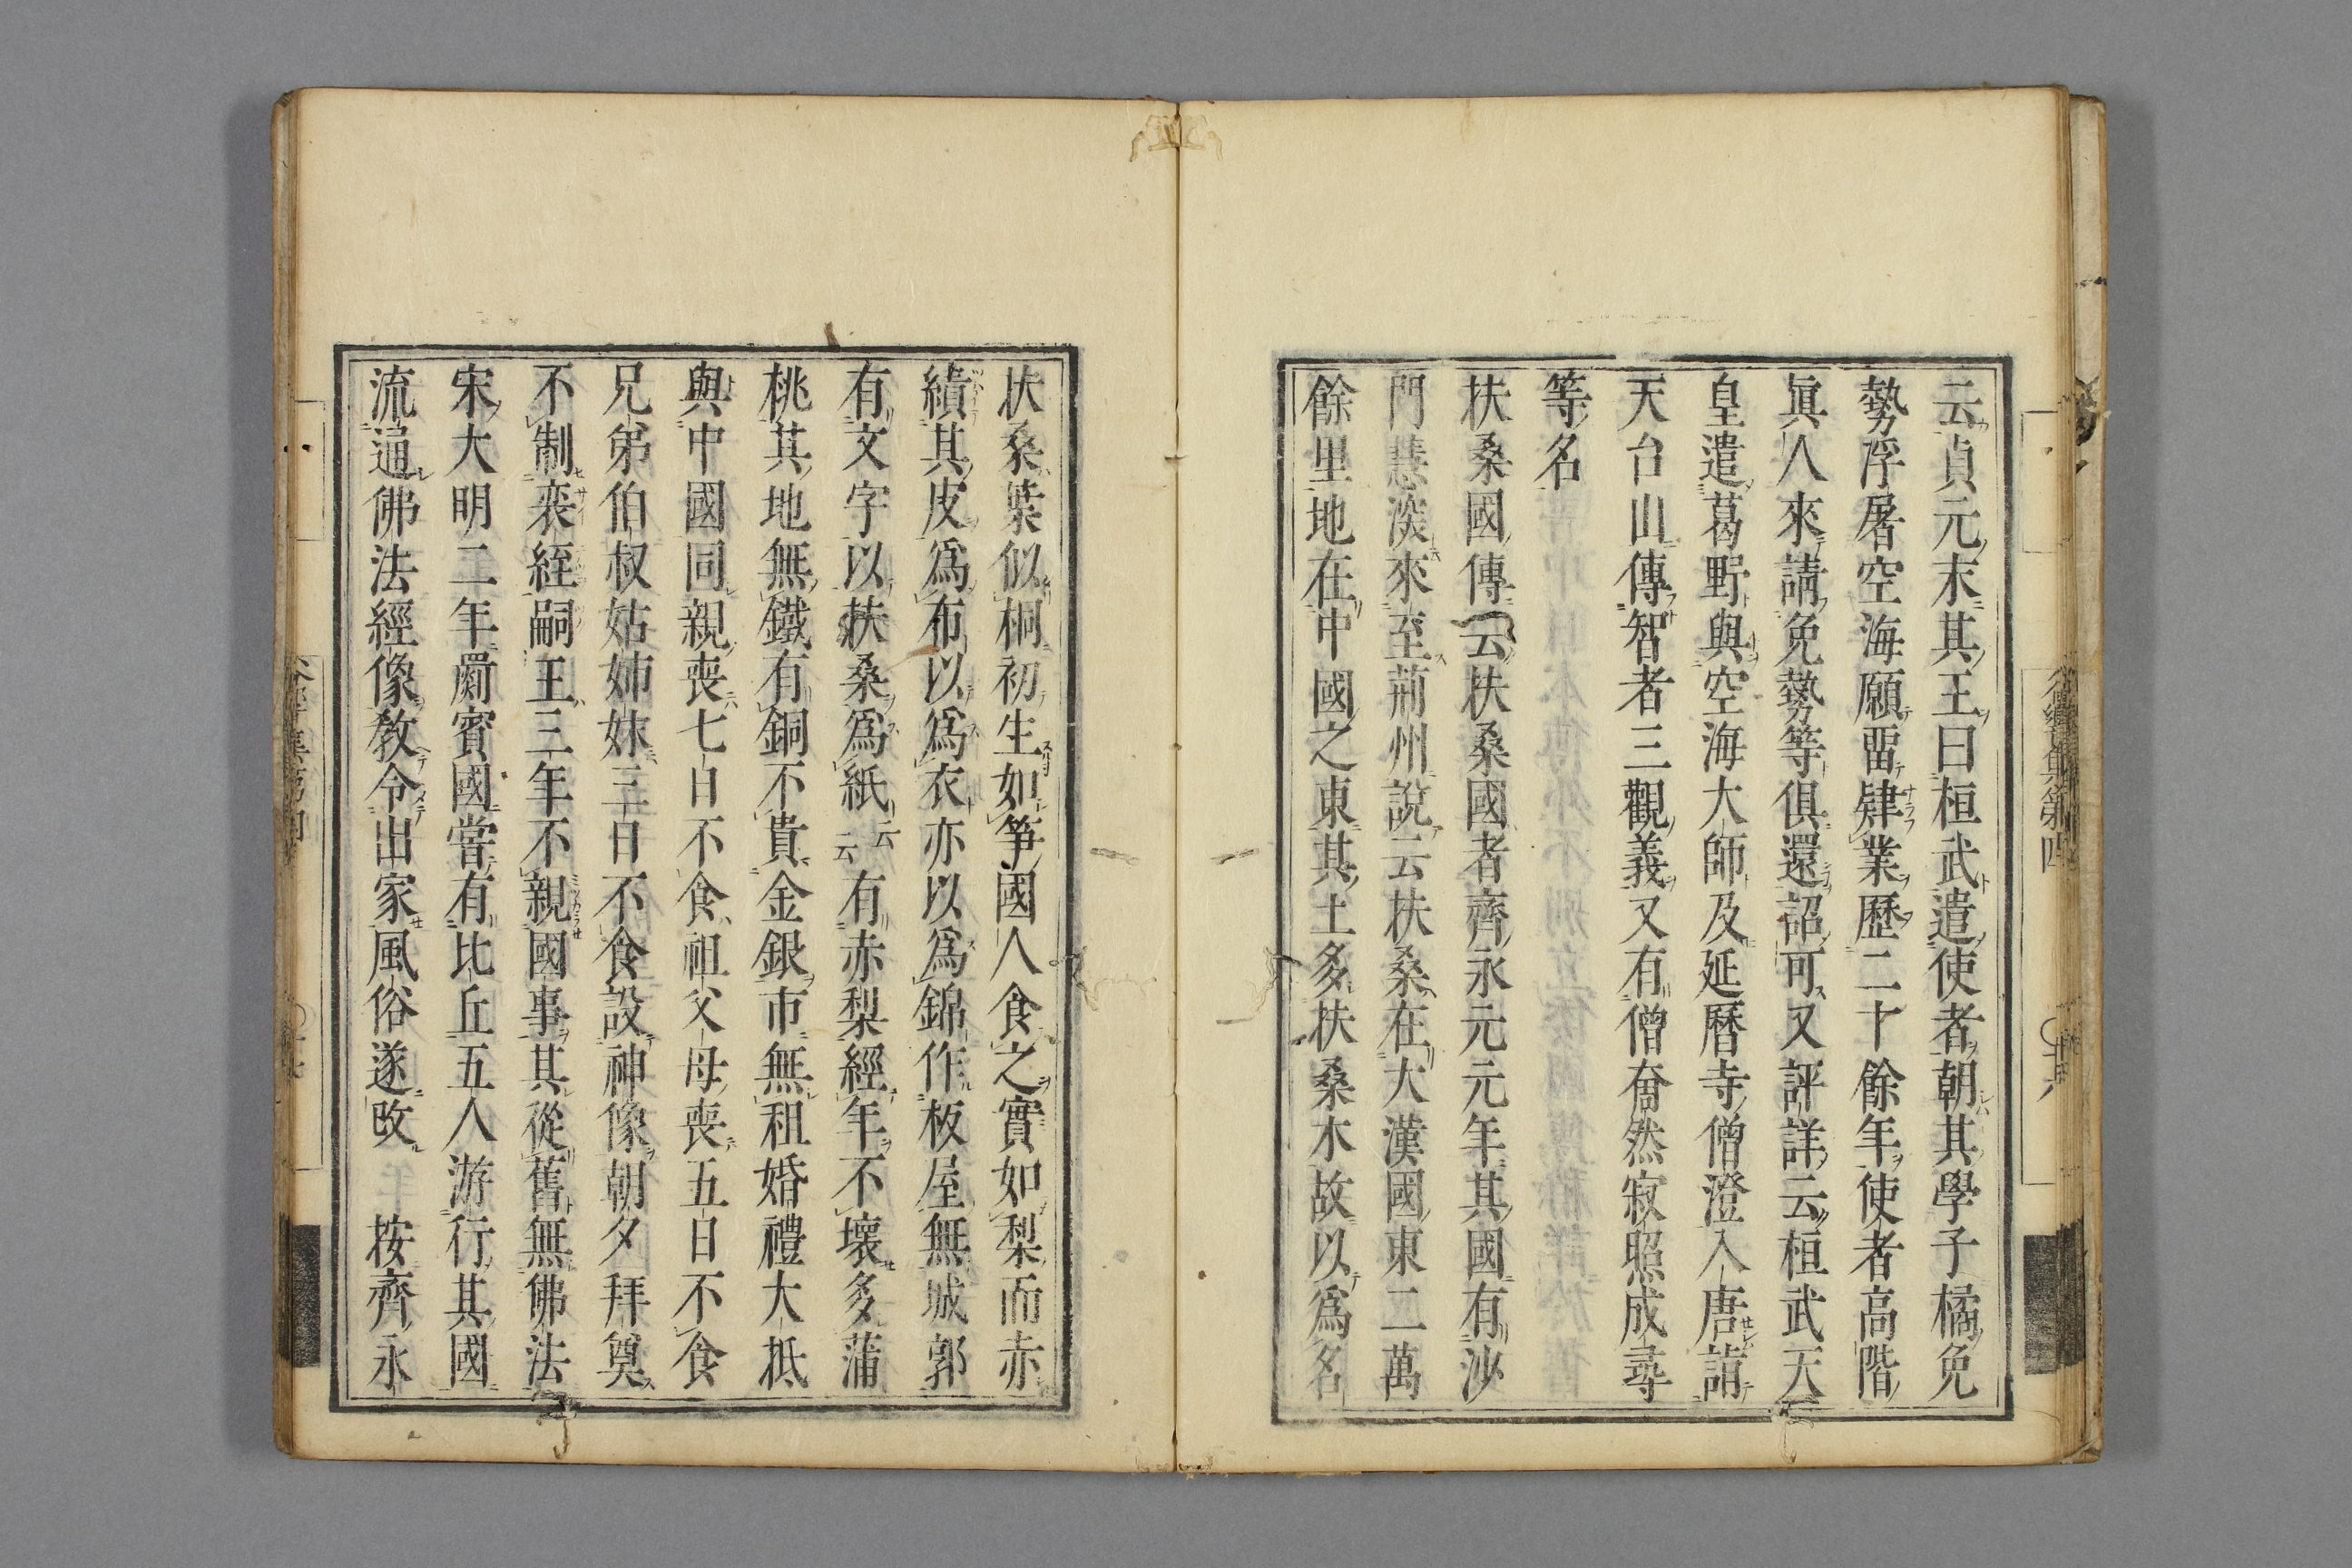 云貞元末其王曰桓武遣使者朝其學子橘免
勢浮屠空海願畱肄業歷二十餘年使者高階
眞人來請免勢等俱還詔可又評詳云桓武天
皇遣葛野與空海大師及延曆寺僧澄入唐詣
天台山傳智者三觀義又有僧奝然寂照成尋
等名
扶桑國傳云扶桑國者齊永元元年其國有沙
門慧深來至荊州說云扶桑在大漢國東二萬
餘里地在中國之東其土多扶桑木故以爲名
扶桑葉似桐初生如笋國人食之實如梨而赤
績其皮爲布以爲衣亦以爲錦作板屋無城郭
有文字以扶桑爲紙云云有赤梨經年不壞多蒲
桃其地無鐵有銅不貴金銀市無租婚禮大抵
與中國同親喪七日不食祖父母喪五日不食
兄弟伯叔姑姉妹三日不食設神像朝夕拜奠
不制衰絰嗣王三年不親國事其從舊無佛法
宋大明二年罽賓國嘗有比丘五人游行其國
流通佛法經像敎令出家風俗遂改　按齊永